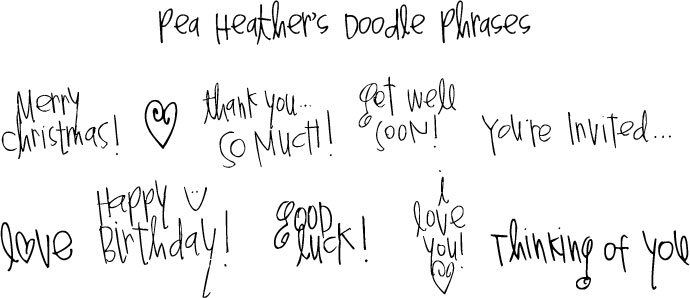 Pea Heather's Doodle Phrases
Merry
christmas!
thank you...
so Much!
get well
soon!
You're Invited...
love
Happy
Birthday!
Good
luck!
i
love
you!
Thinking of you